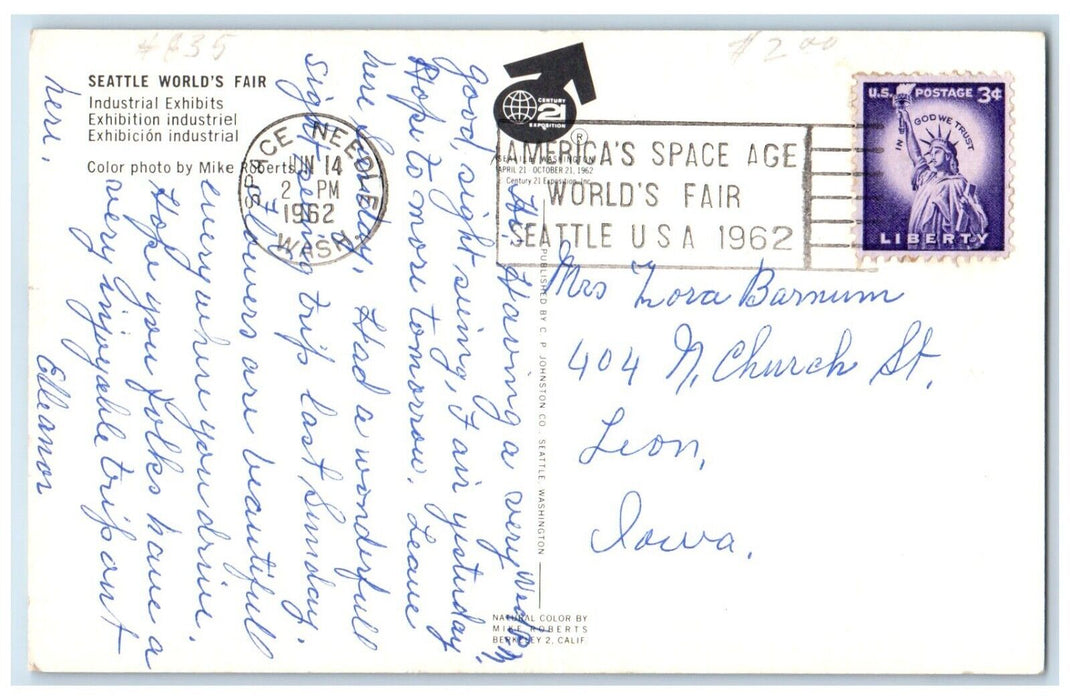 #635
#2.00
SEATTLE WORLD'S FAIR
Industrial Exhibits
Exhibition industriel
Exhibición industrial
Color photo by Mike Roberts
SPACE NEEDLE
JUN 14
2 PM
1962
WASH.
CENTURY
21
EXPOSITION
®
SEATTLE, WASHINGTON
APRIL 21 - OCTOBER 21, 1962
Century 21 Exposition, Inc.
AMERICA'S SPACE AGE
WORLD'S FAIR
SEATTLE USA 1962
U.S. POSTAGE 3¢
IN GOD WE TRUST
LIBERTY
Wed P.M.
Hi, Having a very
good, sight seeing, Fair yesterday.
Hope to more tomorrow. Leave
here Sunday, Had a wonderfull
sight seeing trip last Sunday.
Flowers are beautifull
everywhere you drive.
Hope you folks have a
very injoyable trip out
here.
Elleanor
PUBLISHED BY C. P. JOHNSTON CO., SEATTLE, WASHINGTON
NATURAL COLOR BY
MIKE ROBERTS
BERKELEY 2, CALIF.
Mrs Zora Barnum
404 N. Church St.
Leon,
Iowa.